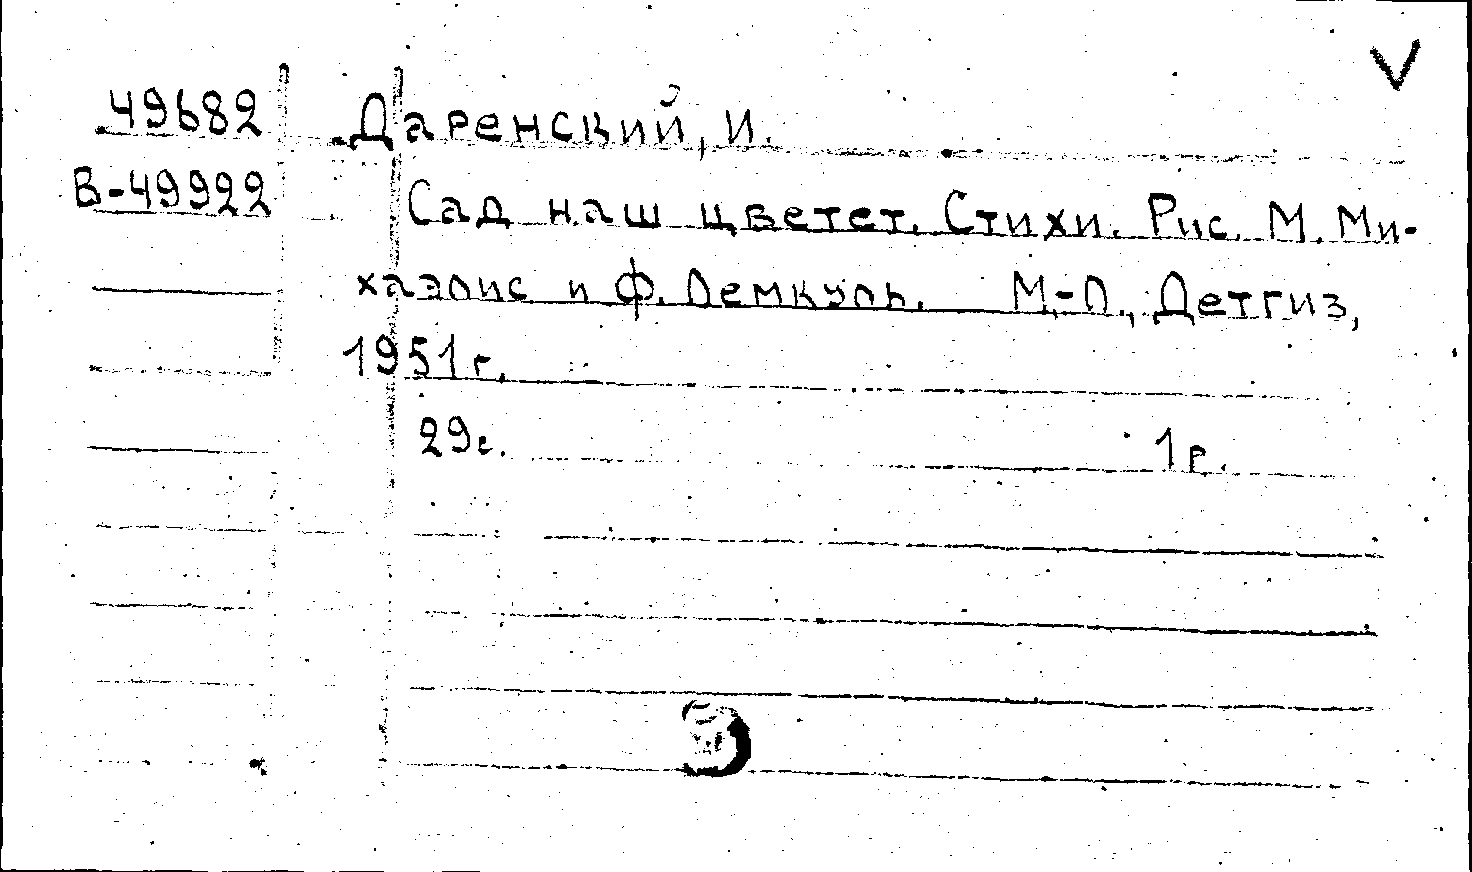 V
49682 Даренский, И.
В-49922 Сад наш цветет. Стихи. Рис. М. Ми-
хаэлис и Ф. Лемкуль. М.-Л., Детгиз,
1951 г.
29 с. 1 р.